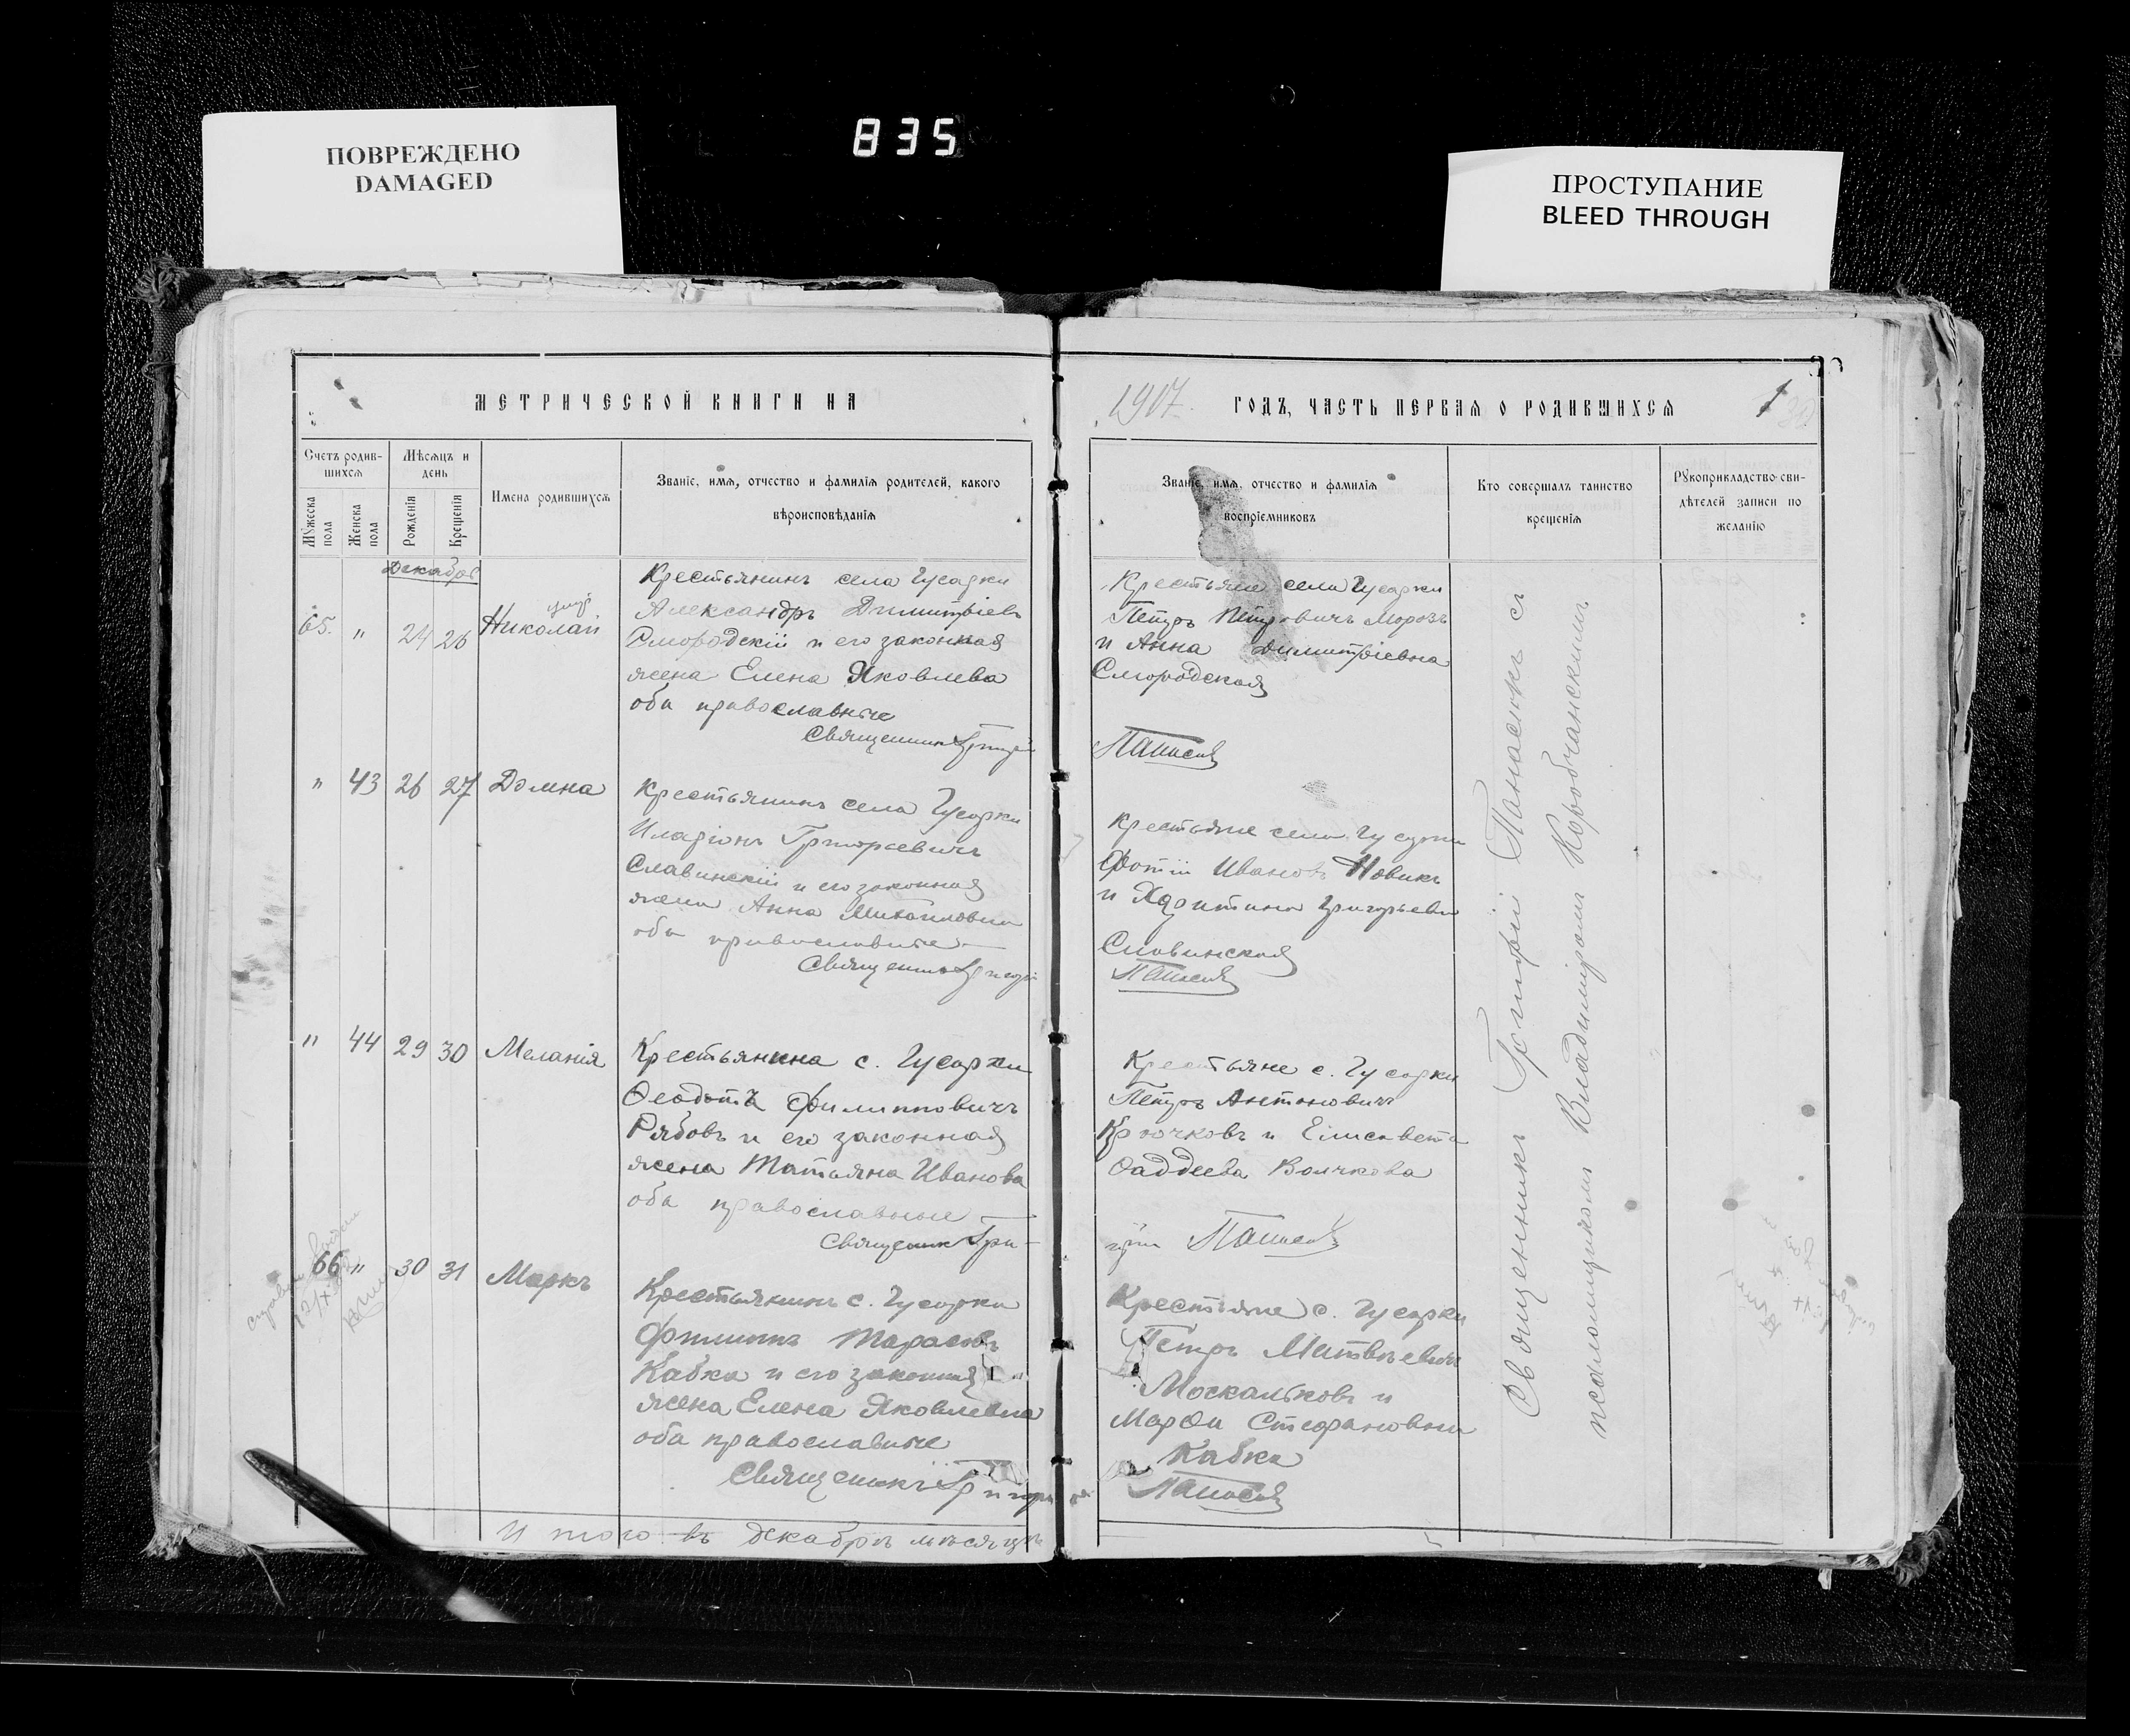 ПОВРЕЖДЕНО
DAMAGED
835
ПРОСТУПАНИЕ
BLEED THROUGH
МЕТРИЧЕСКОЙ КНИГИ НА
1907 ГОДЪ, ЧАСТЬ ПЕРВАЯ О РОДИВШИХСЯ
Счетъ родив-
шихся
Мѣсяцъ и
день
Мужеска
пола
Женска
пола
Рожденія
Крещенія
Имена родившихся
Званіе, имя, отчество и фамилія родителей, какого
вѣроисповѣданія
Званіе, имя, отчество и фамилія
воспріемниковъ
Кто совершалъ таинство
крещенія
Рукоприкладство сви-
дѣтелей записи по
желанію
Декабрь
65. " 24 26 Николай
Крестьянинъ села Гусарки
Александръ Димитріевъ
Смородскій и его законная
жена Елена Яковлева
оба православные
Священникъ Григорій
Крестьяне села Гусарки
Петръ Петровичъ Морозъ
и Анна Димитріевна
Смородская
Панасюк
" 43 26 27 Домна
Крестьянинъ села Гусарки
Иларіонъ Григорьевичъ
Славинскій и его законная
жена Анна Михайловна
оба православные
Священникъ Григорій
Крестьяне села Гусарки
Фотій Ивановъ Новикъ
и Харитина Григорьева
Славинская
Панасюк
" 44 29 30 Меланія
Крестьянина с. Гусарки
Ѳеодотъ Филипповичъ
Рябовъ и его законная
жена Татьяна Иванова
оба православные
Священник Гри-
Крестьяне с. Гусарки
Петръ Антоновичъ
Крючковъ и Елисавета
Ѳаддеева Волчкова
горій Панасюк
66 " 30 31 Маркъ
Крестьянинъ с. Гусарки
Филиппъ Тарасовъ
Кабка и его законная
жена Елена Яковлевна
оба православные
Священникъ Григорій
Крестьяне с. Гусарки
Петръ Матвѣевичъ
Москальковъ и
Марѳа Стефановна
Кабка
Панасюк
Священникъ Григорій Панасюкъ съ
псаломщикомъ Владиміромъ Коробчанскимъ
Итого въ декабрѣ мѣсяцѣ